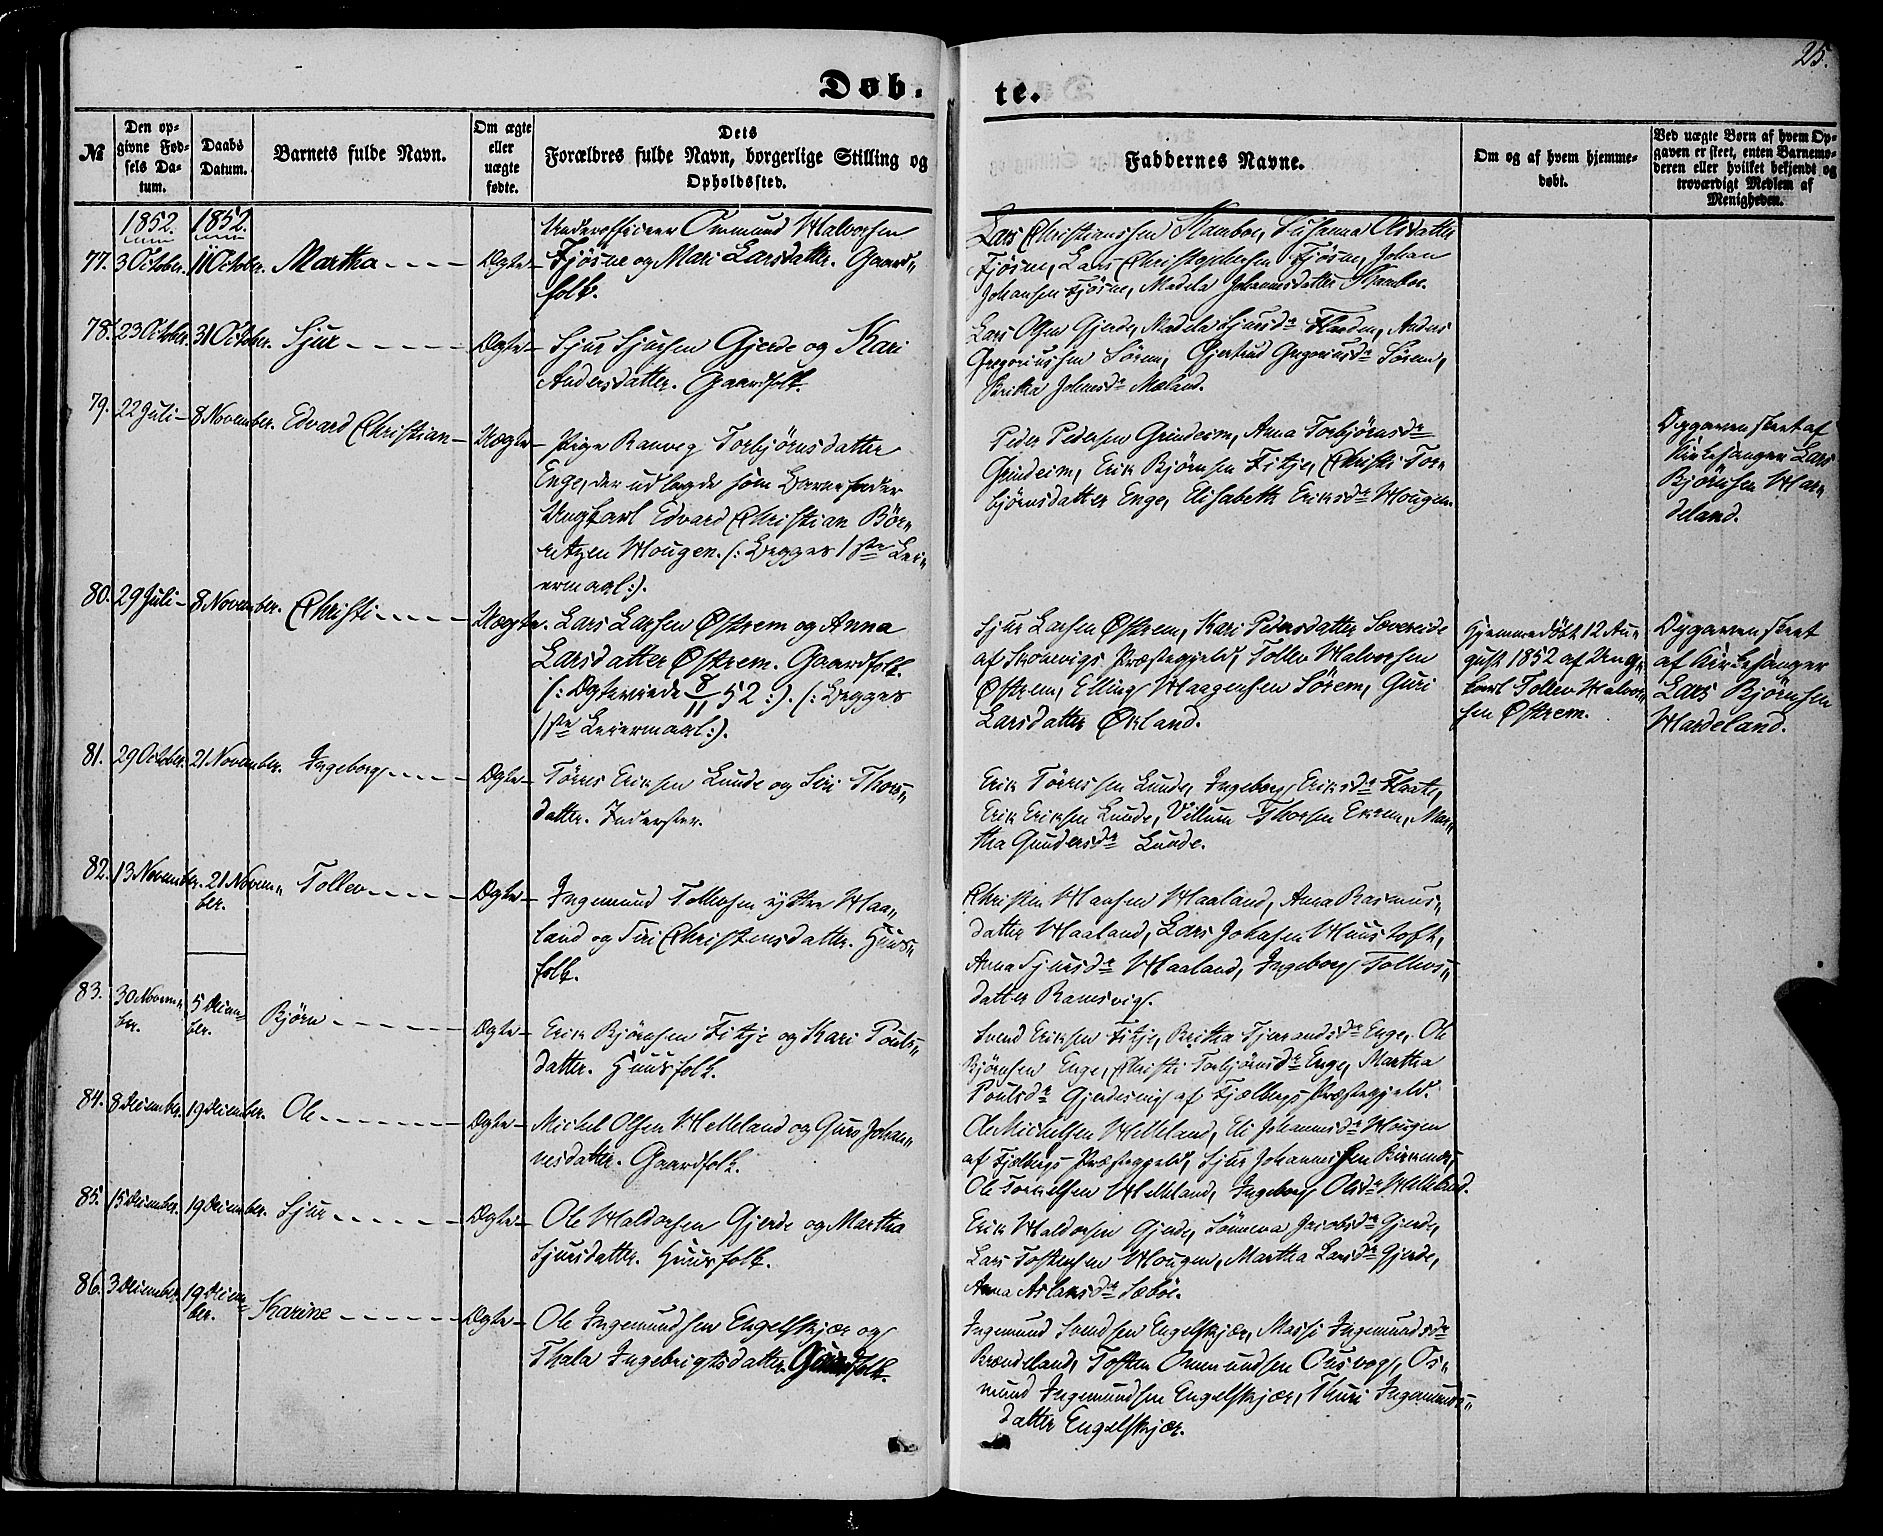 25.
Døb-
te.
№
Den op-
givne Fød-
sels Da-
tum.
Daabs
Datum.
Barnets fulde Navn.
Om ægte
eller
uægte
fødte.
Dets
Forældres fulde Navn, borgerlige Stilling og
Opholdssted.
Faddernes Navne.
Om og af hvem hjemme-
døbt.
Ved uægte Børn af hvem Op-
gaven er skeet, enten Barnemo-
deren eller hvilket bekjendt og
troværdigt Medlem af
Menigheden.
1852. 1852.
77. 3 October. 11 October. Martha Ægte
Underofficeer Ommund Halvorsen
Fjøsne og Mari Larsdatter. Gaard-
folk.
Lars Christiansen Kamboe, Susanna Olsdatter
Fjøsne, Lars Christophersen Fjøsne, Johan
Johansen Fjøsne, Madela Johannesdatter Kamboe.
78. 23 October. 31 October. Sjur Ægte
Sjur Sjursen Gjerde og Kari
Andersdatter. Gaardfolk.
Lars Olsen Gjerde, Madela Sjursdr Anders
Gregoriussen Sørem, Gjertrud Gregoriusdr Sørem,
Britha Johnsdr Mæland.
79. 22 Juli 8 November. Edvard Christian Uægte
Pige Ranveg Torbjørnsdatter
Enge, der udlagde som Barnefader
Ungkarl Edvard Christian Bør-
retzen Hougen. (: Begges 1ste Lei-
ermaal:).
Peder Pedersen Grindeim, Anna Torbjørnsdr
Grindeim, Erik Bjørnsen Fitje, Christi Tor-
bjørnsdatter Enge, Elisabeth Eriksdr Hougen.
Opgaven skeet af
Kirkesanger Lars
Bjørnsen Har-
deland.
80. 29 Juli 8 November. Christi Uægte.
Lars Larsen Østrem og Anna
Larsdatter Østrem. Gaardfolk.
(: Ægteviede 8/11 52 :). (: Begges
1ste Leiermaal:).
Sjur Larsen Østrem, Kari Pedersdatter Sævereide
af Skonevigs Præstegjeld, Tollev Halvorsen
Østrem, Elling Haagensen Sørem, Guri
Larsdatter Økland.
Hjemmedøbt 12 Au-
gust 1852 af Ung-
karl Tollev Halvor-
sen Østrem.
Opgaven skeet
af Kirkesanger
Lars Bjørnsen
Hardeland.
81. 29 October. 21 November. Ingeborg Ægte
Tørres Eriksen Lunde og Siri Thors-
datter. Inderster.
Erik Tørressen Lunde, Ingeborg Eriksdr Flaate,
Erik Eriksen Lunde, Villum Thorsen Ekrem, Mar-
tha Gundersdr Lunde.
82. 13 November. 21 Novem-
ber. Tollev Ægte
Ingemund Tollevsen yttre Haa-
land og Siri Christensdatter. Huus-
folk.
Christen Hansen Haaland, Anna Rasmus-
datter Haaland, Lars Johnsen Huustoft,
Anna Sjursdr Haaland, Ingeborg Tollevs-
datter Ramsvig.
83. 30 Novem-
ber. 5 Decem-
ber. Bjørn Ægte
Erik Bjørnsen Fitje og Kari Pouls-
datter. Huusfolk.
Svend Eriksen Fitje, Britha Tjerandsdr Enge, Ole
Bjørnsen Enge, Christi Torbjørnsdr Enge, Martha
Poulsdr af Fjelbergs Præstegjeld.
84. 8 December. 19 December. Ole Ægte
Michel Olsen Helleland og Guro Johan-
nesdatter. Gaardfolk.
Ole Michelsen Helleland, Eli Johannesdr Hougen
af Fjelbergs Præstegjeld, Sjur Johannessen
Ole Torkelsen Helleland, Ingeborg Olsdr Helleland.
85. 15 December. 19 December. Sjur Ægte
Ole Haldorsen Gjerde og Martha
Sjursdatter. Huusfolk.
Erik Haldorsen Gjerde, Sønneva Jacobsdr Gjerde,
Lars Tostensen Hougen, Martha Larsdr Gjerde,
Anna Aslaksdr Sæbøe.
86. 3 December. 19 Decem-
ber. Karine Ægte
Ole Ingemundsen Engelskjær og
Thala Ingebrigtsdatter. Gaardfolk.
Ingemund Svendsen Engelskjær, Massi Ingemundsdr
Brændeland, Tosten Ommundsen Ousvog, Os-
mund Ingemundsen Engelskjær, Thuri Ingemunds-
datter Engelskjær.